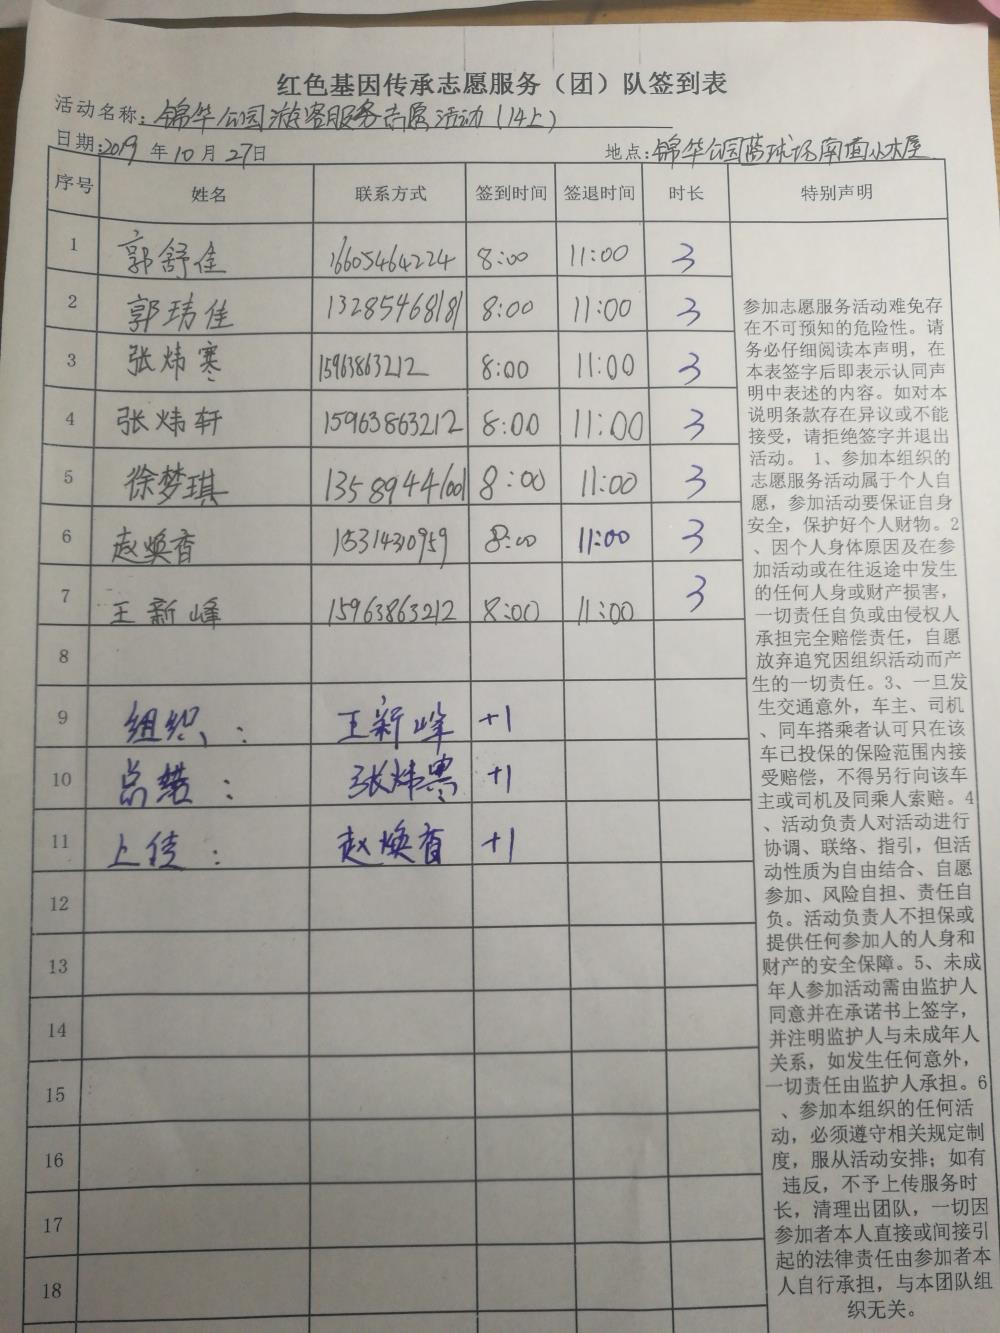 红色基因传承志愿服务（团）队签到表
活动名称：锦华公园游客服务志愿活动（14上）
日期：2019 年 10 月 27 日 地点：锦华公园篮球场南面小木屋
序号 姓名 联系方式 签到时间 签退时间 时长 特别声明
1 郭舒佳 16605464224 8:00 11:00 3
2 郭玮佳 13285468181 8:00 11:00 3
3 张炜寒 15963863212 8:00 11:00 3
4 张炜轩 15963863212 8:00 11:00 3
5 徐梦琪 13589441001 8:00 11:00 3
6 赵焕香 8:00 11:00 3
7 王新峰 15963863212 8:00 11:00 3
8
9 组织： 王新峰 +1
10 总带： 张炜寒 +1
11 上传： 赵焕香 +1
12
13
14
15
16
17
18
参加志愿服务活动难免存
在不可预知的危险性。请
务必仔细阅读本声明，在
本表签字后即表示认同声
明中表述的内容。如对本
说明条款存在异议或不能
接受，请拒绝签字并退出
活动。 1、参加本组织的
志愿服务活动属于个人自
愿，参加活动要保证自身
安全，保护好个人财物。2
、因个人身体原因及在参
加活动或在往返途中发生
的任何人身或财产损害，
一切责任自负或由侵权人
承担完全赔偿责任，自愿
放弃追究因组织活动而产
生的一切责任。3、一旦发
生交通意外，车主、司机
、同车搭乘者认可只在该
车已投保的保险范围内接
受赔偿，不得另行向该车
主或司机及同乘人索赔。4
、活动负责人对活动进行
协调、联络、指引，但活
动性质为自由结合、自愿
参加、风险自担、责任自
负。活动负责人不担保或
提供任何参加人的人身和
财产的安全保障。5、未成
年人参加活动需由监护人
同意并在承诺书上签字，
并注明监护人与未成年人
关系，如发生任何意外，
一切责任由监护人承担。6
、参加本组织的任何活
动，必须遵守相关规定制
度，服从活动安排；如有
违反，不予上传服务时
长，清理出团队，一切因
参加者本人直接或间接引
起的法律责任由参加者本
人自行承担，与本团队组
织无关。